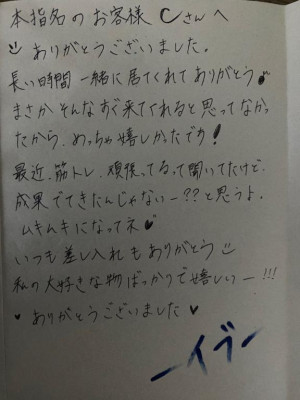 本指名のお客様 Cさんへ
ありがとうございました。
長い時間 一緒に居てくれてありがとう♪
まさかそんなすぐ来てくれると思ってなかっ
たから、めっちゃ嬉しかったです!
最近、筋トレ、頑張ってるって聞いてたけど、
成果でてきたんじゃないー??と思うよ。
ムキムキになってネ♥
いつも差し入れもありがとう
私の大好きな物ばっかりで嬉しいー!!!
♥ ありがとうございました ♥
ーイブー